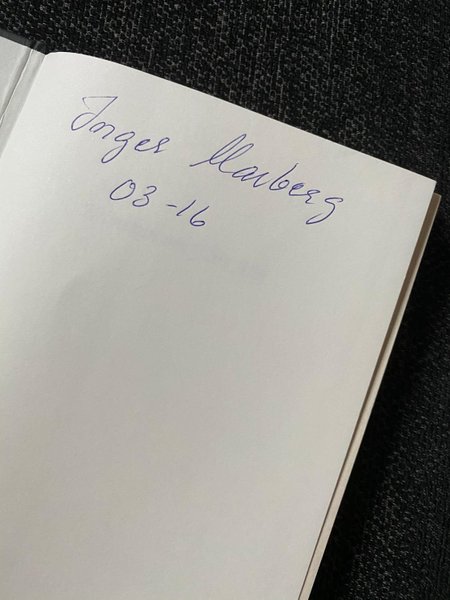 Inger Marberg
03-16